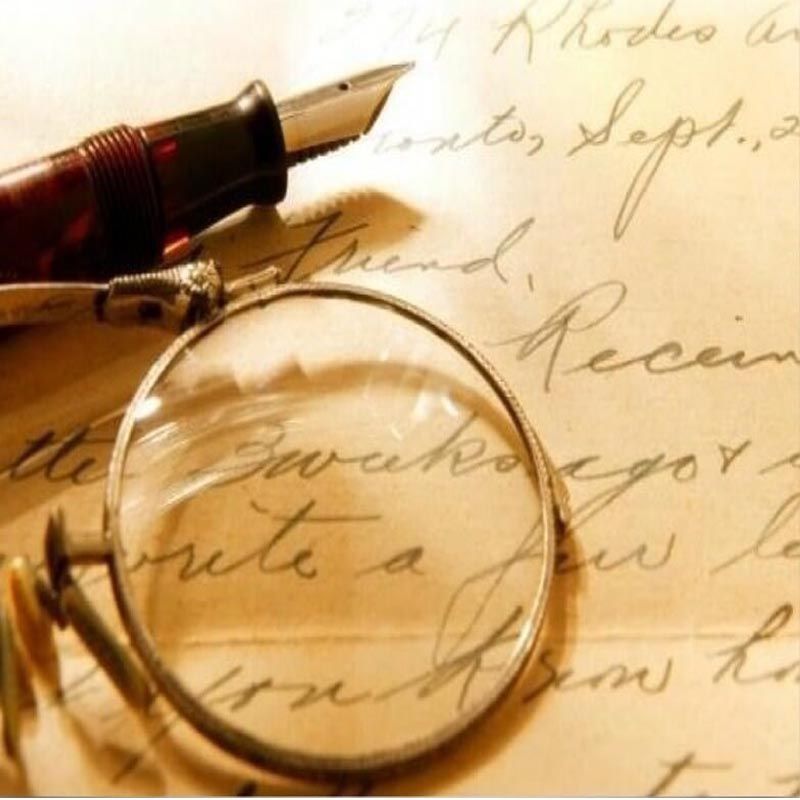 274 Rhodes Av
ronto, Sept., 2
Friend,
Receiv
tter 3 weeks ago &
write a few le
you know ho
to